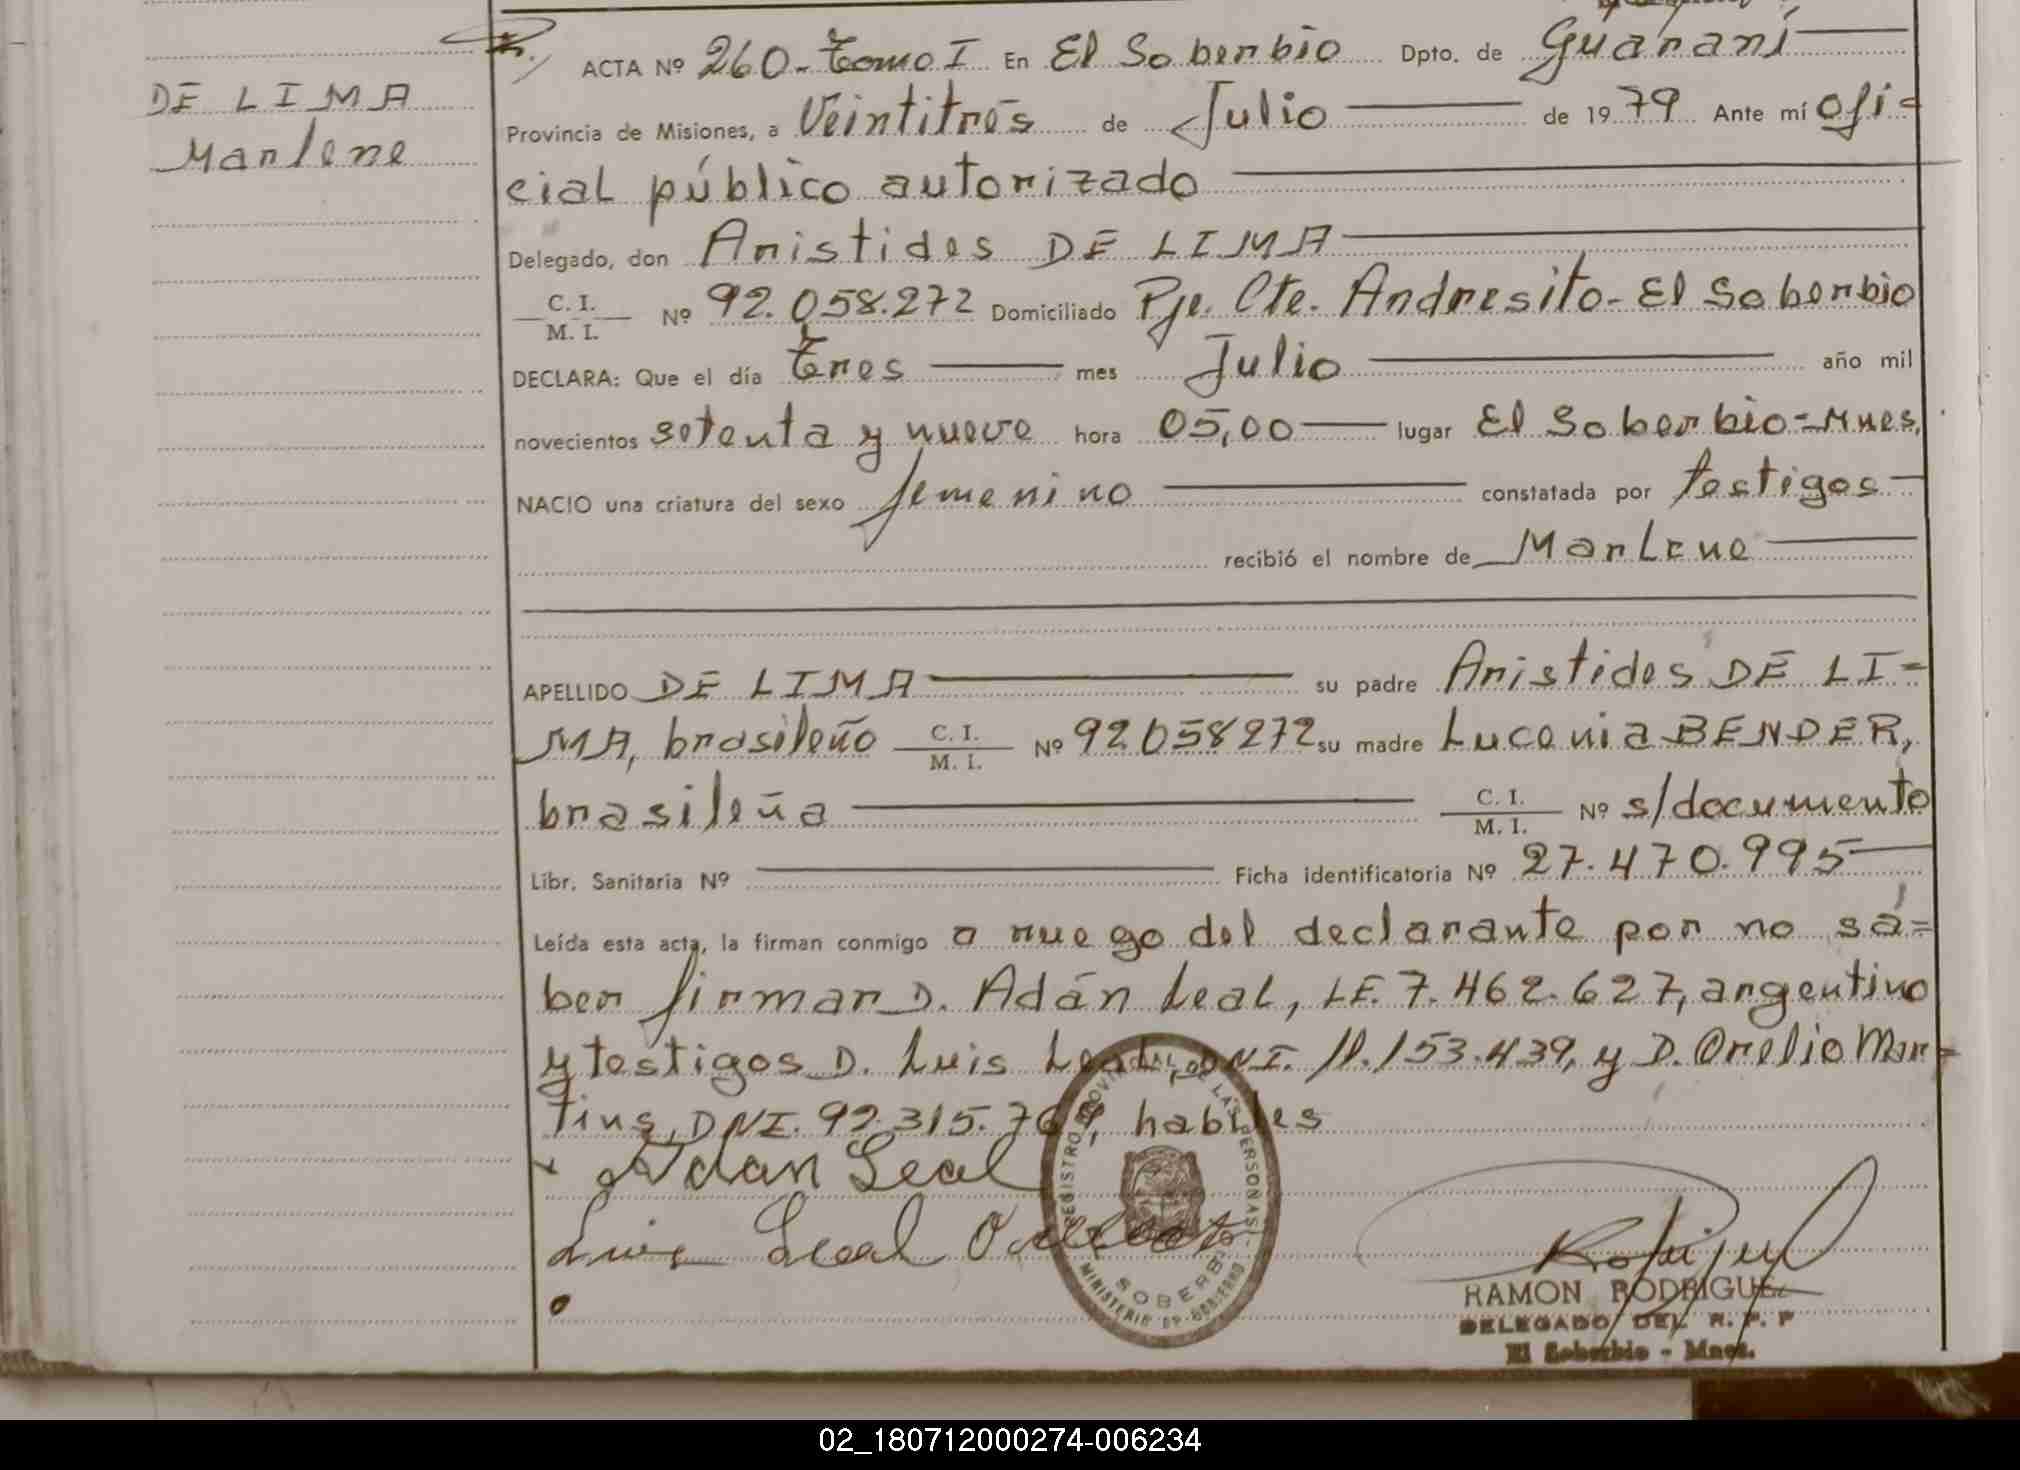 DE LIMA
Marlene
ACTA Nº 260-Tomo I En El Soberbio Dpto. de Guaraní
Provincia de Misiones, a Veintitrés de Julio de 1979 Ante mí ofi=
cial público autorizado
Delegado, don Aristides DE LIMA
C. I.
M. I. Nº 92.058.272 Domiciliado Pje. Cte. Andresito-El Soberbio
DECLARA: Que el día Tres mes Julio año mil
novecientos setenta y nueve hora 05,00 lugar El Soberbio=Mnes,
NACIO una criatura del sexo femenino constatada por testigos
recibió el nombre de Marlene
APELLIDO DE LIMA su padre Aristides DE LI=
MA, brasileño C. I. M. I. Nº 92058272 su madre Lucenia BENDER,
brasileña C. I. M. I. Nº s/documento
Libr. Sanitaria Nº Ficha identificatoria Nº 27.470.995
Leída esta acta, la firman conmigo a ruego del declarante por no sá=
ber firmar D. Adán Leal, LE. 7.462.627, argentino
y testigos D. Luis Leal, DNI. 11.153.439, y D. Orelio Mar=
tins, DNI. 92.315.76 , habiles
Adan Leal
Luis Leal
REGISTRO PROVINCIAL DE LAS PERSONAS
SOBERBIO
MINISTERIO DE GOBIERNO
RAMON RODRIGUEZ
DELEGADO DEL R. P. P
El Soberbio - Mnes.
02_180712000274-006234